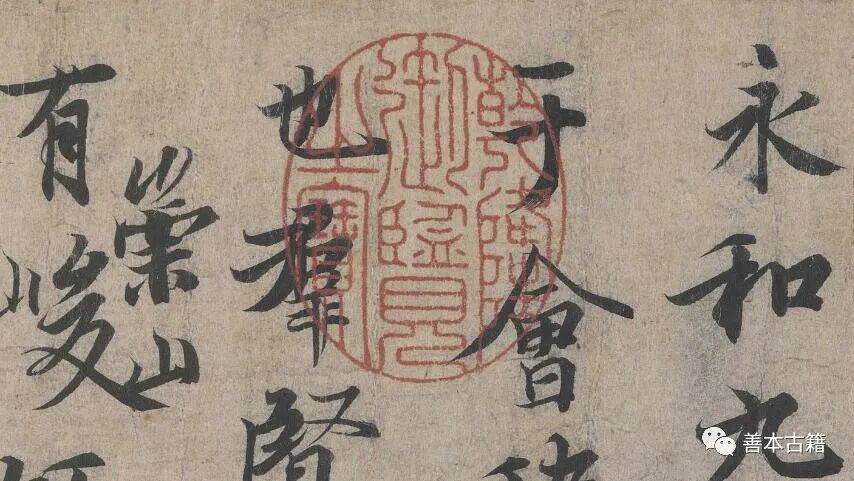 永和九
于會
也羣賢
崇山
有峻
乾隆
御覽
之寶
善本古籍